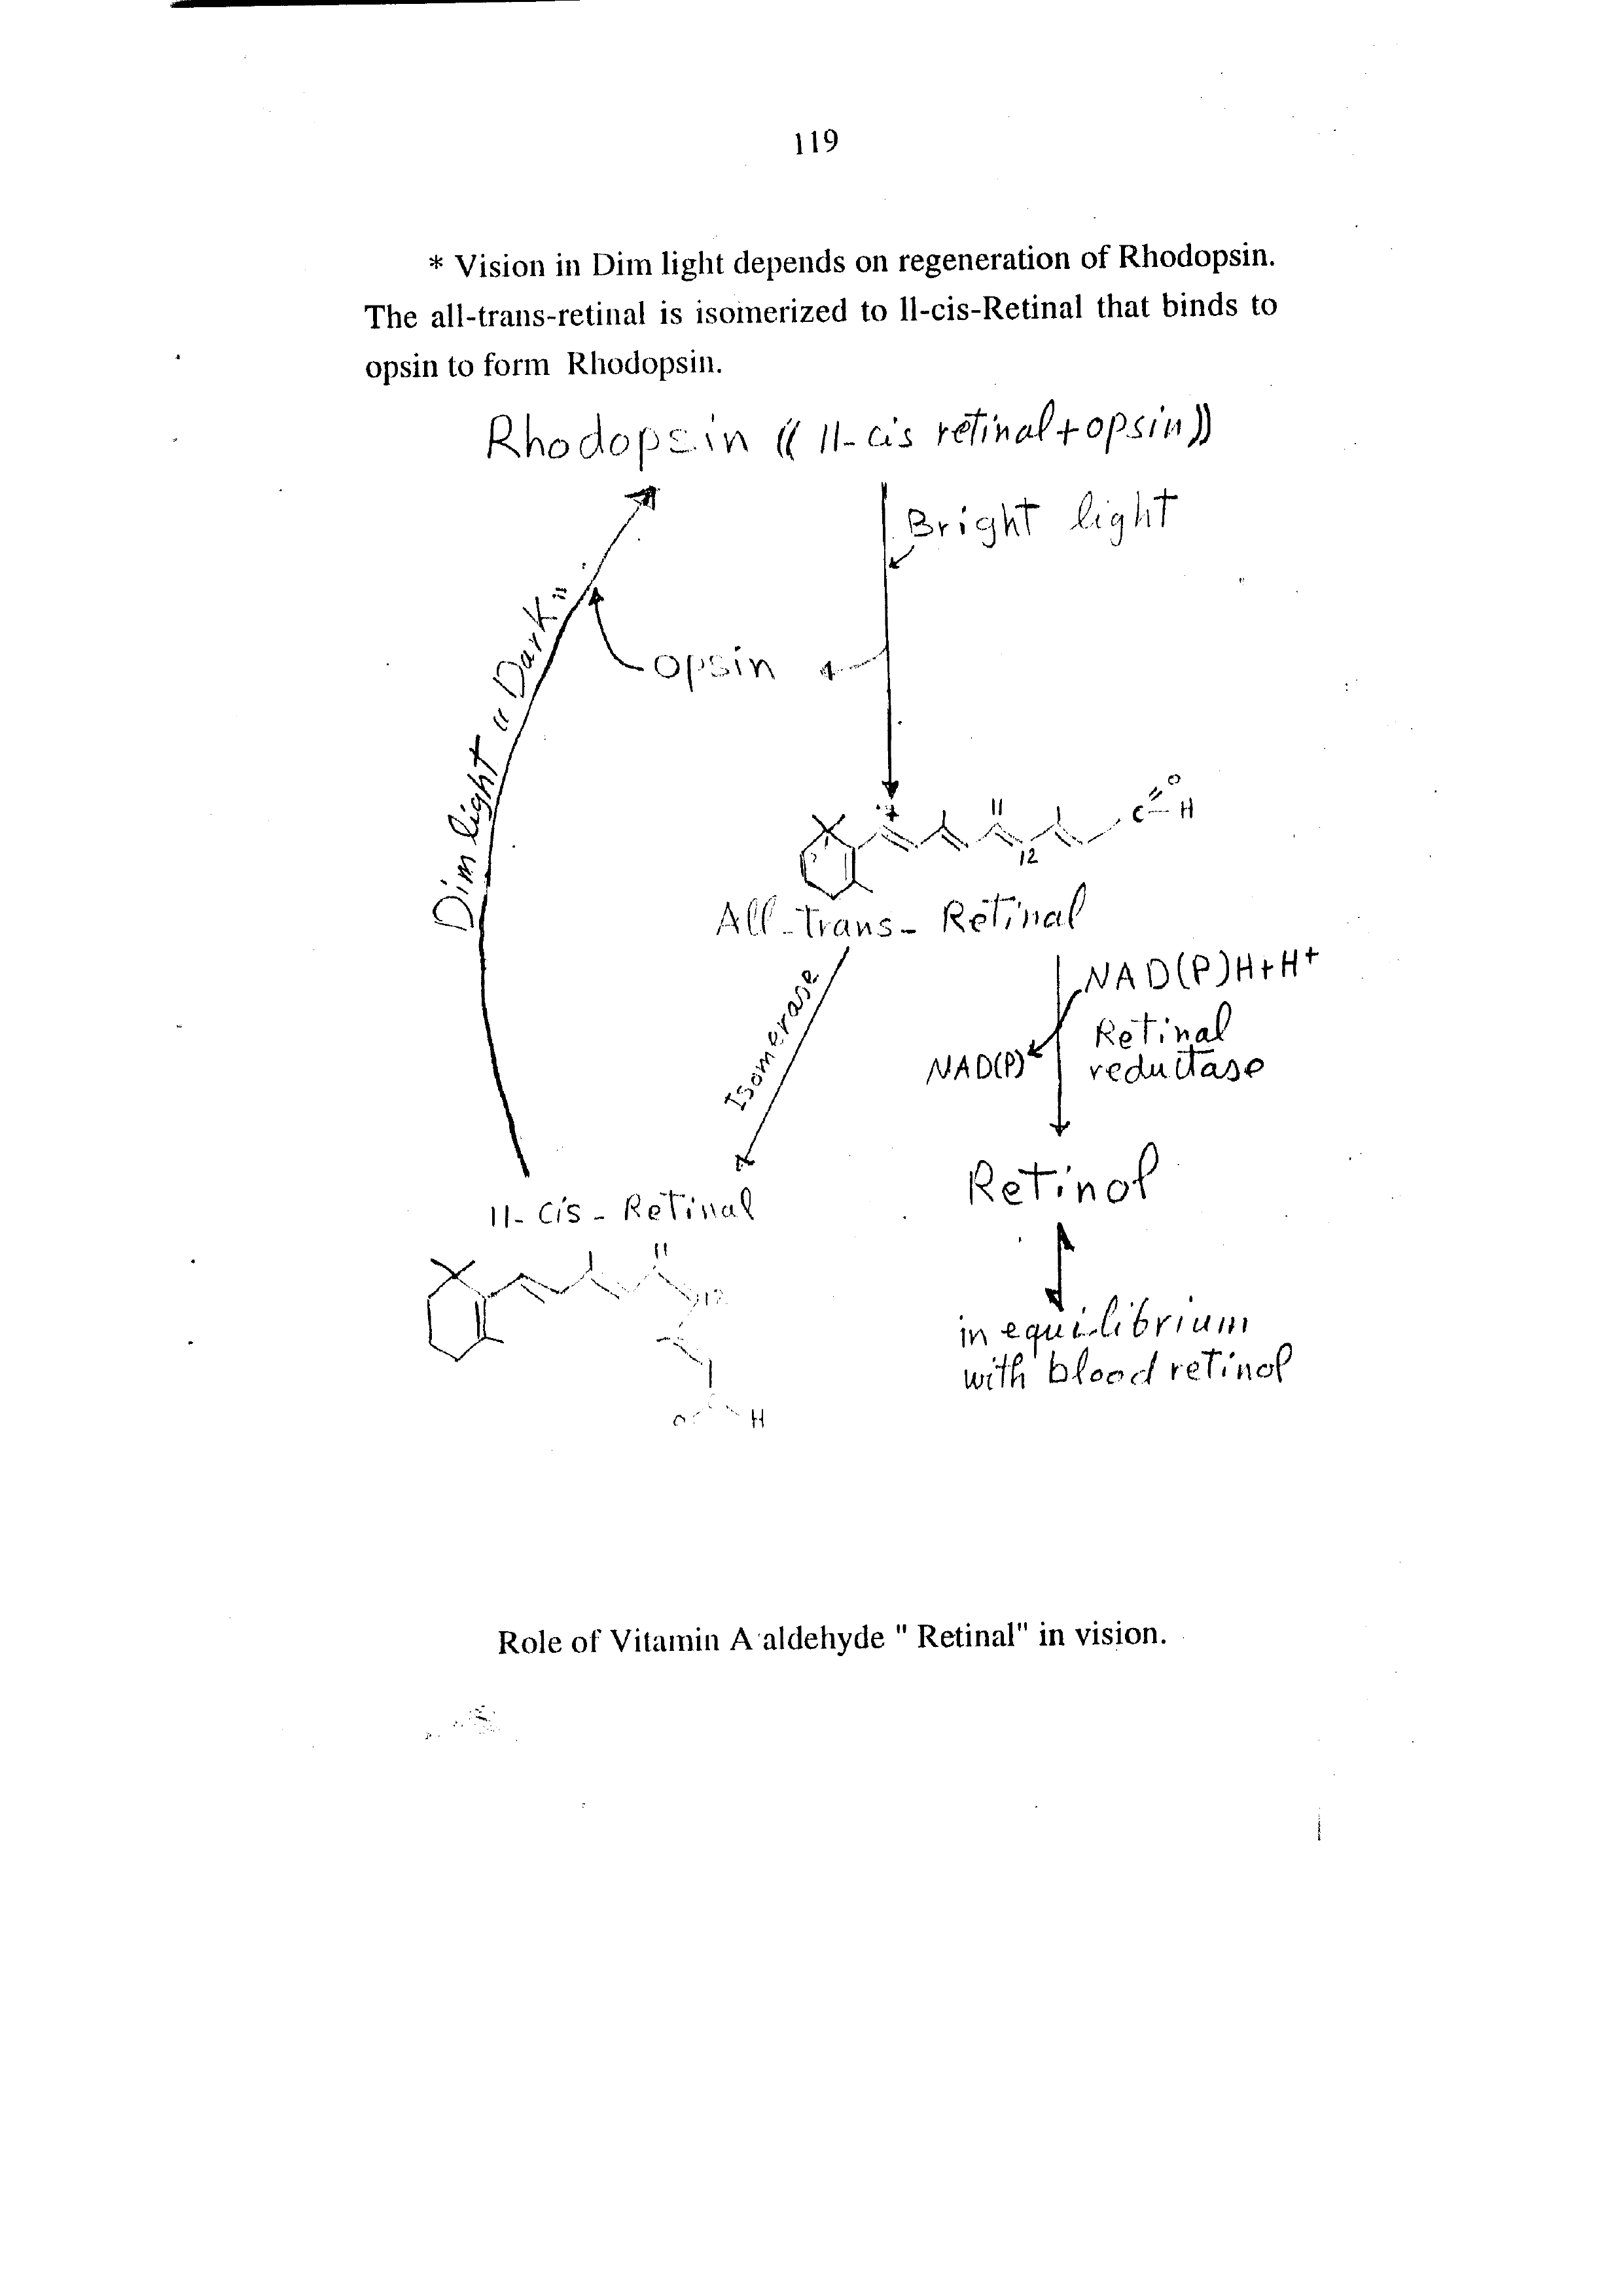 119
* Vision in Dim light depends on regeneration of Rhodopsin.
The all-trans-retinal is isomerized to ll-cis-Retinal that binds to
opsin to form Rhodopsin.
Rhodopsin (( 11-cis retinal + opsin ))
Bright light
Dim light " Dark "
opsin
C=O
H
7
11
12
All-Trans-Retinal
Isomerase
NAD(P)H+H+
Retinal
reductase
NAD(P)
Retinol
11-Cis-Retinal
11
12
O
C
H
in equilibrium
with blood retinol
Role of Vitamin A aldehyde " Retinal" in vision.